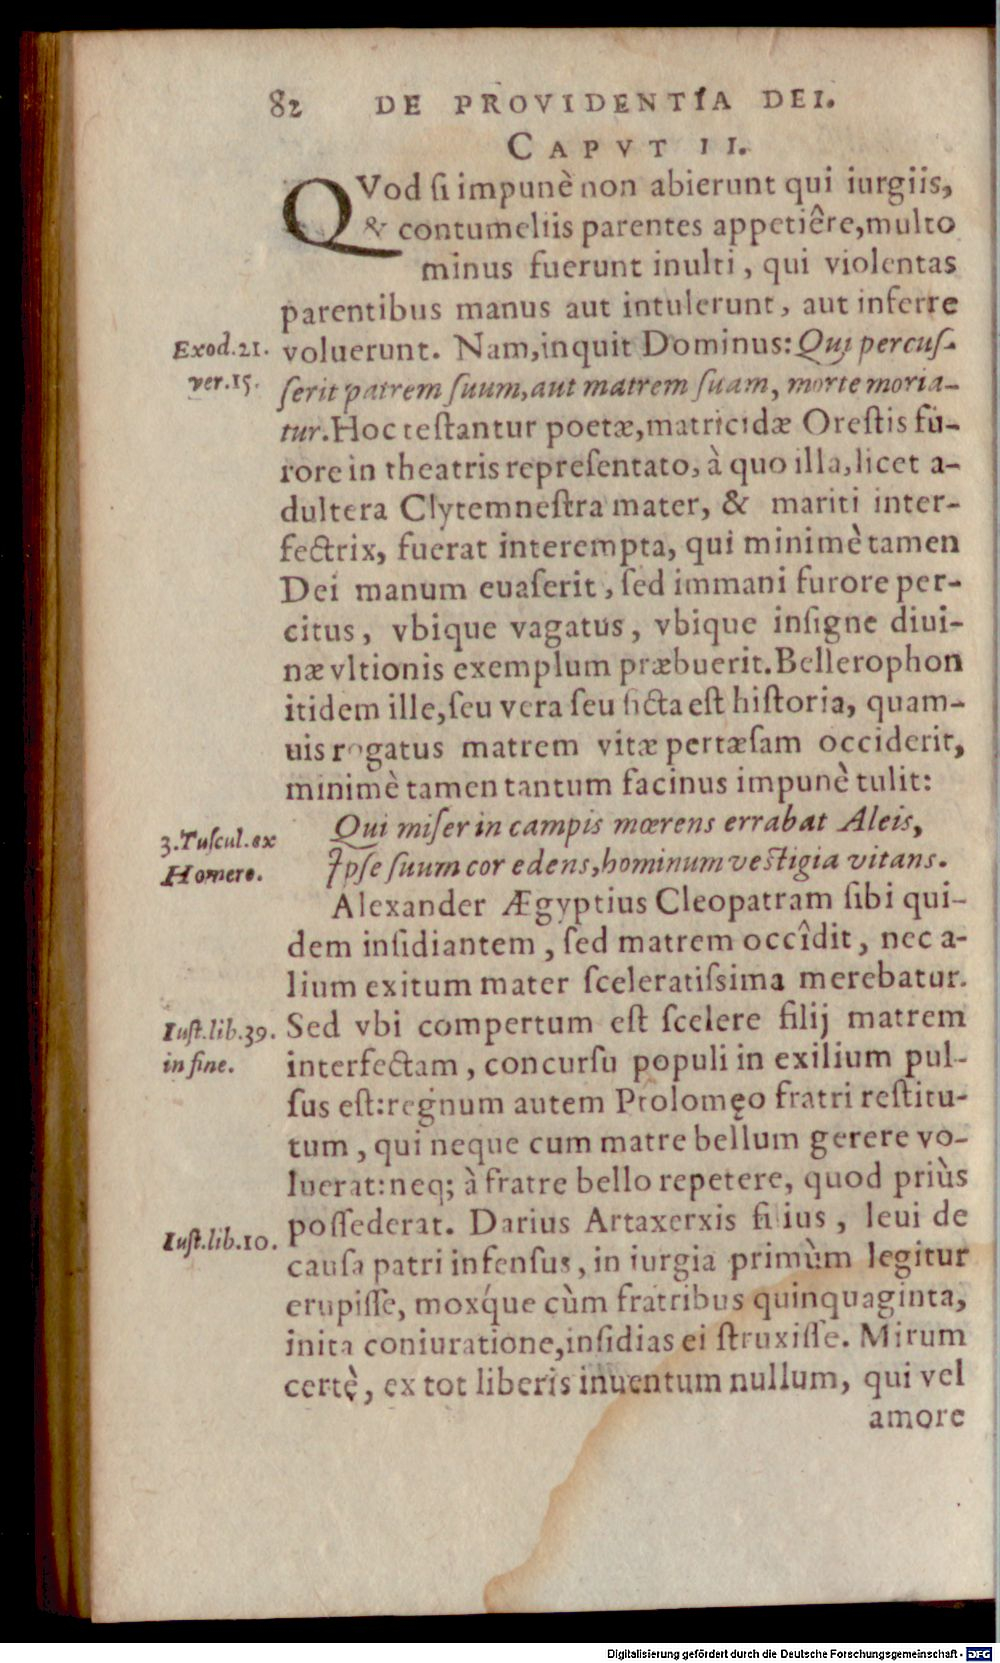 82 DE PROVIDENTIA DEI.
CAPVT II.
QVod ſi impunè non abierunt qui iurgiis,
& contumeliis parentes appetiêre, multo
minus fuerunt inulti, qui violentas
parentibus manus aut intulerunt, aut inferre
Exod.21.
voluerunt. Nam, inquit Dominus: Qui percuſ-
ver.15.
ſerit patrem ſuum, aut matrem ſuam, morte moria-
tur. Hoc teſtantur poetæ, matricidæ Oreſtis fu-
rore in theatris repreſentato, à quo illa, licet a-
dultera Clytemneſtra mater, & mariti inter-
fectrix, fuerat interempta, qui minimè tamen
Dei manum euaſerit, ſed immani furore per-
citus, vbique vagatus, vbique inſigne diui-
næ vltionis exemplum præbuerit. Bellerophon
itidem ille, ſeu vera ſeu ficta eſt hiſtoria, quam-
uis rogatus matrem vitæ pertæſam occiderit,
minimè tamen tantum facinus impunè tulit:
3.Tuſcul.ex
Qui miſer in campis mœrens errabat Aleis,
Homero.
Ipſe ſuum cor edens, hominum veſtigia vitans.
Alexander Ægyptius Cleopatram ſibi qui-
dem inſidiantem, ſed matrem occîdit, nec a-
lium exitum mater ſceleratiſsima merebatur.
Iuſt.lib.39.
Sed vbi compertum eſt ſcelere filij matrem
in fine.
interfectam, concurſu populi in exilium pul-
ſus eſt: regnum autem Ptolomęo fratri reſtitu-
tum, qui neque cum matre bellum gerere vo-
luerat: neq; à fratre bello repetere, quod priùs
Iuſt.lib.10.
poſſederat. Darius Artaxerxis filius, leui de
cauſa patri infenſus, in iurgia primùm legitur
erupiſſe, moxq́ue cùm fratribus quinquaginta,
inita coniuratione, inſidias ei ſtruxiſſe. Mirum
certè, ex tot liberis inuentum nullum, qui vel
amore
Digitalisierung gefördert durch die Deutsche Forschungsgemeinschaft - DFG